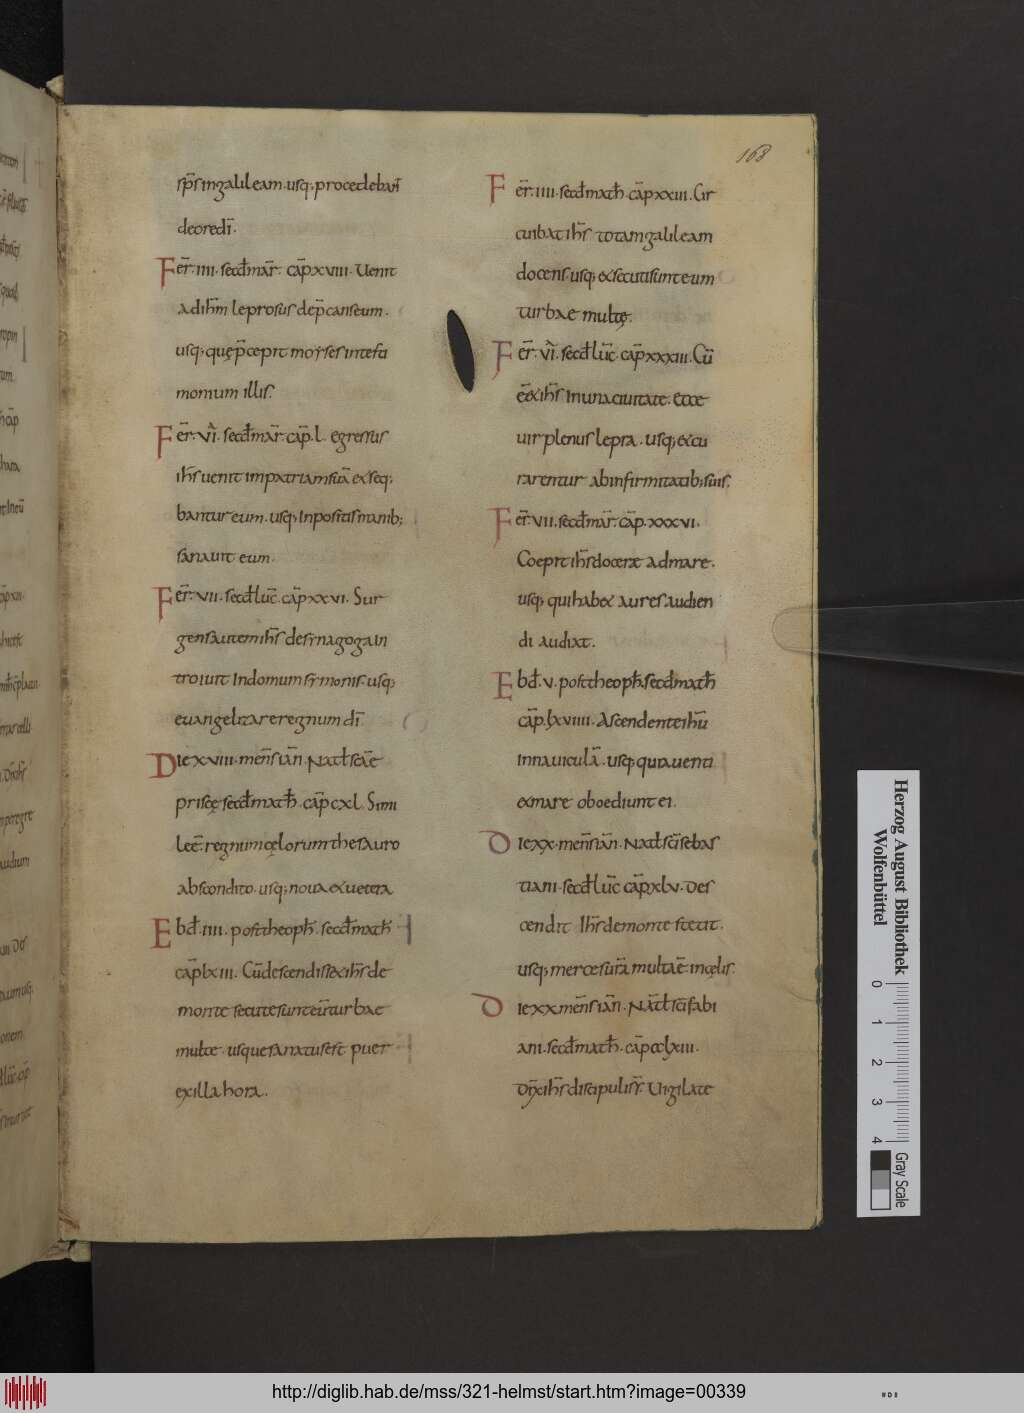 168
sp̅s ingalileam. usq; procedebant̅
deore di̅.
Fer̅. IIII. sec̅d mar̅. cap̅ XVIII. Uenit
ad ih̅m leprosus dep̅cans eum.
usq; quę p̅cepit moyses intesti
monium illis.
Fer̅. VI̅. sec̅d mar̅. cap̅. L. egressus
ih̅s uenit inpatriam sua̅ et seq;
bantur eum. usq; Inpositis manib;
sanauit eum.
Fer̅. VII. sec̅d luc̅. cap̅ XXVI. Sur
gens autem ih̅s desynagoga In
troiuit Indomum symonis. usq;
euangelizare regnum di̅.
Die XVIII. men̅s ian̅. Nat̅l sc̅ae
priscę sec̅d math̅. cap̅ CXL. Simi
le e̅. regnum cęlorum thesauro
abscondito. usq; noua et uetera
Ebd̅. IIII. post theoph̅. sec̅d math̅
cap̅ LXIII. Cu̅ descendisset ih̅s de
monte secute sunt eu̅ turbae
multe. usque sanatus est puer
exilla hora.
Fer̅. IIII. sec̅d math̅. cap̅ XXIII. Cir
cuibat ih̅s totam galileam
docens. usq; et secuti sunt eum
turbae multę.
Fer̅. VI̅. sec̅d luc̅. cap̅ XXXIII. Cu̅
ee̅t ih̅s In una ciuitate. et ecce
uir plenus lepra. usq; et cu
rarentur abinfirmitatib; suis.
Fer̅. VII. sec̅d mar̅. cap̅. XXXVI.
Coepit ih̅s docere admare.
usq; qui habet aures audien
di audiat.
Ebd̅. V. post theoph̅. sec̅d math̅
cap̅. LXVIIII. Ascendente ih̅u
innauicula̅. usq; quia uenti
et mare oboediunt ei.
Die XX. men̅s ian̅. Nat̅l sc̅i sebas
tiani. sec̅d luc̅ cap̅ XLV. Des
cendit Ih̅s de monte stetit.
usq; merces ur̅a multa e̅. in cęlis.
Die XX men̅s ian̅. Nat̅l sc̅i fabi
ani. sec̅d math̅. cap̅ CCLXIII.
Dix̅ ih̅s discipulis s̅. Uigilate
Herzog August Bibliothek
Wolfenbüttel
0 1 2 3 4
Gray Scale
http://diglib.hab.de/mss/321-helmst/start.htm?image=00339